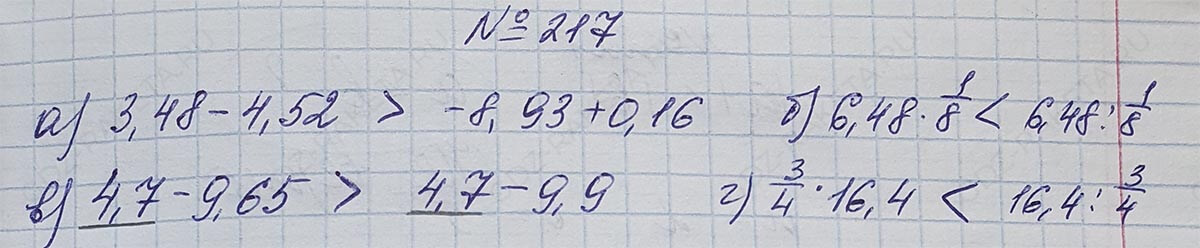 № 217
а) 3,48 - 4,52 > -8,93 + 0,16 б) 6,48 · 1/8 < 6,48 : 1/8
в) 4,7 - 9,65 > 4,7 - 9,9 г) 3/4 · 16,4 < 16,4 : 3/4